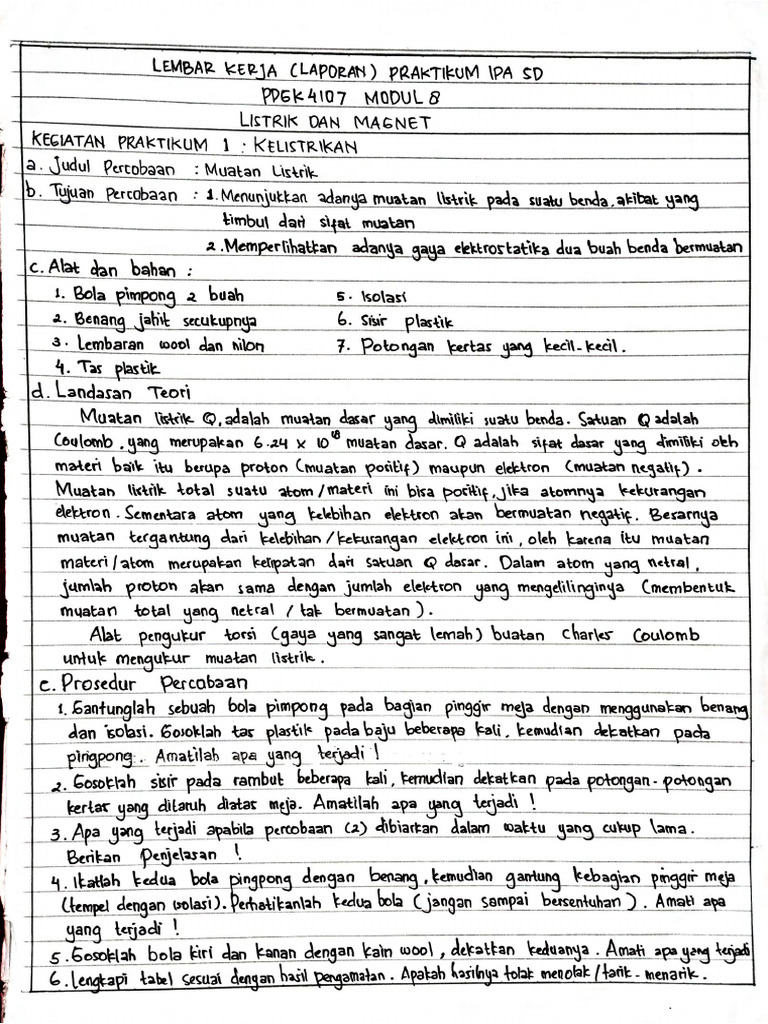 LEMBAR KERJA (LAPORAN) PRAKTIKUM IPA SD
PDGK4107 MODUL 8
LISTRIK DAN MAGNET
KEGIATAN PRAKTIKUM 1 : KELISTRIKAN
a. Judul Percobaan : Muatan Listrik
b. Tujuan Percobaan : 1. Menunjukkan adanya muatan listrik pada suatu benda, akibat yang
timbul dari sifat muatan
2. Memperlihatkan adanya gaya elektrostatika dua buah benda bermuatan
c. Alat dan bahan :
1. Bola pimpong 2 buah 5. Isolasi
2. Benang jahit secukupnya 6. Sisir plastik
3. Lembaran wool dan nilon 7. Potongan kertas yang kecil-kecil.
4. Tas plastik
d. Landasan Teori
Muatan listrik Q, adalah muatan dasar yang dimiliki suatu benda. Satuan Q adalah
Coulomb, yang merupakan 6.24 x 10¹⁸ muatan dasar. Q adalah sifat dasar yang dimiliki oleh
materi baik itu berupa proton (muatan positif) maupun elektron (muatan negatif).
Muatan listrik total suatu atom/materi ini bisa positif, jika atomnya kekurangan
elektron. Sementara atom yang kelebihan elektron akan bermuatan negatif. Besarnya
muatan tergantung dari kelebihan/kekurangan elektron ini, oleh karena itu muatan
materi/atom merupakan kelipatan dari satuan Q dasar. Dalam atom yang netral,
jumlah proton akan sama dengan jumlah elektron yang mengelilinginya (membentuk
muatan total yang netral / tak bermuatan).
Alat pengukur torsi (gaya yang sangat lemah) buatan Charles Coulomb
untuk mengukur muatan listrik.
e. Prosedur Percobaan
1. Gantunglah sebuah bola pimpong pada bagian pinggir meja dengan menggunakan benang
dan isolasi. Gosoklah tas plastik pada baju beberapa kali, kemudian dekatkan pada
pingpong. Amatilah apa yang terjadi!
2. Gosoklah sisir pada rambut beberapa kali, kemudian dekatkan pada potongan-potongan
kertas yang ditaruh diatas meja. Amatilah apa yang terjadi!
3. Apa yang terjadi apabila percobaan (2) dibiarkan dalam waktu yang cukup lama.
Berikan Penjelasan!
4. Ikatlah kedua bola pingpong dengan benang, kemudian gantung kebagian pinggir meja
(tempel dengan isolasi). Perhatikanlah kedua bola (jangan sampai bersentuhan). Amati apa
yang terjadi!
5. Gosoklah bola kiri dan kanan dengan kain wool, dekatkan keduanya. Amati apa yang terjadi
6. Lengkapi tabel sesuai dengan hasil pengamatan. Apakah hasilnya tolak menolak/tarik-menarik.